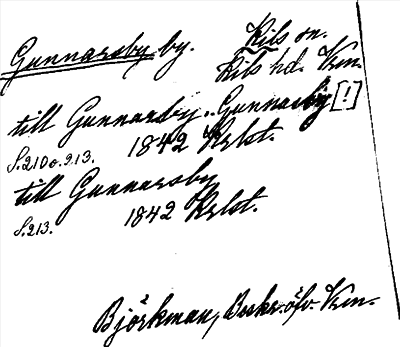 Gunnarsby by.
Kils sn.
Kils hd. Vrm.
till Gunnarsby, Gunnarby [!]
S.210 o. 213. 1842 Krlst.
till Gunnarsby
S.213. 1842 Krlst.
Björkman, Beskr. öfv. Vrm.